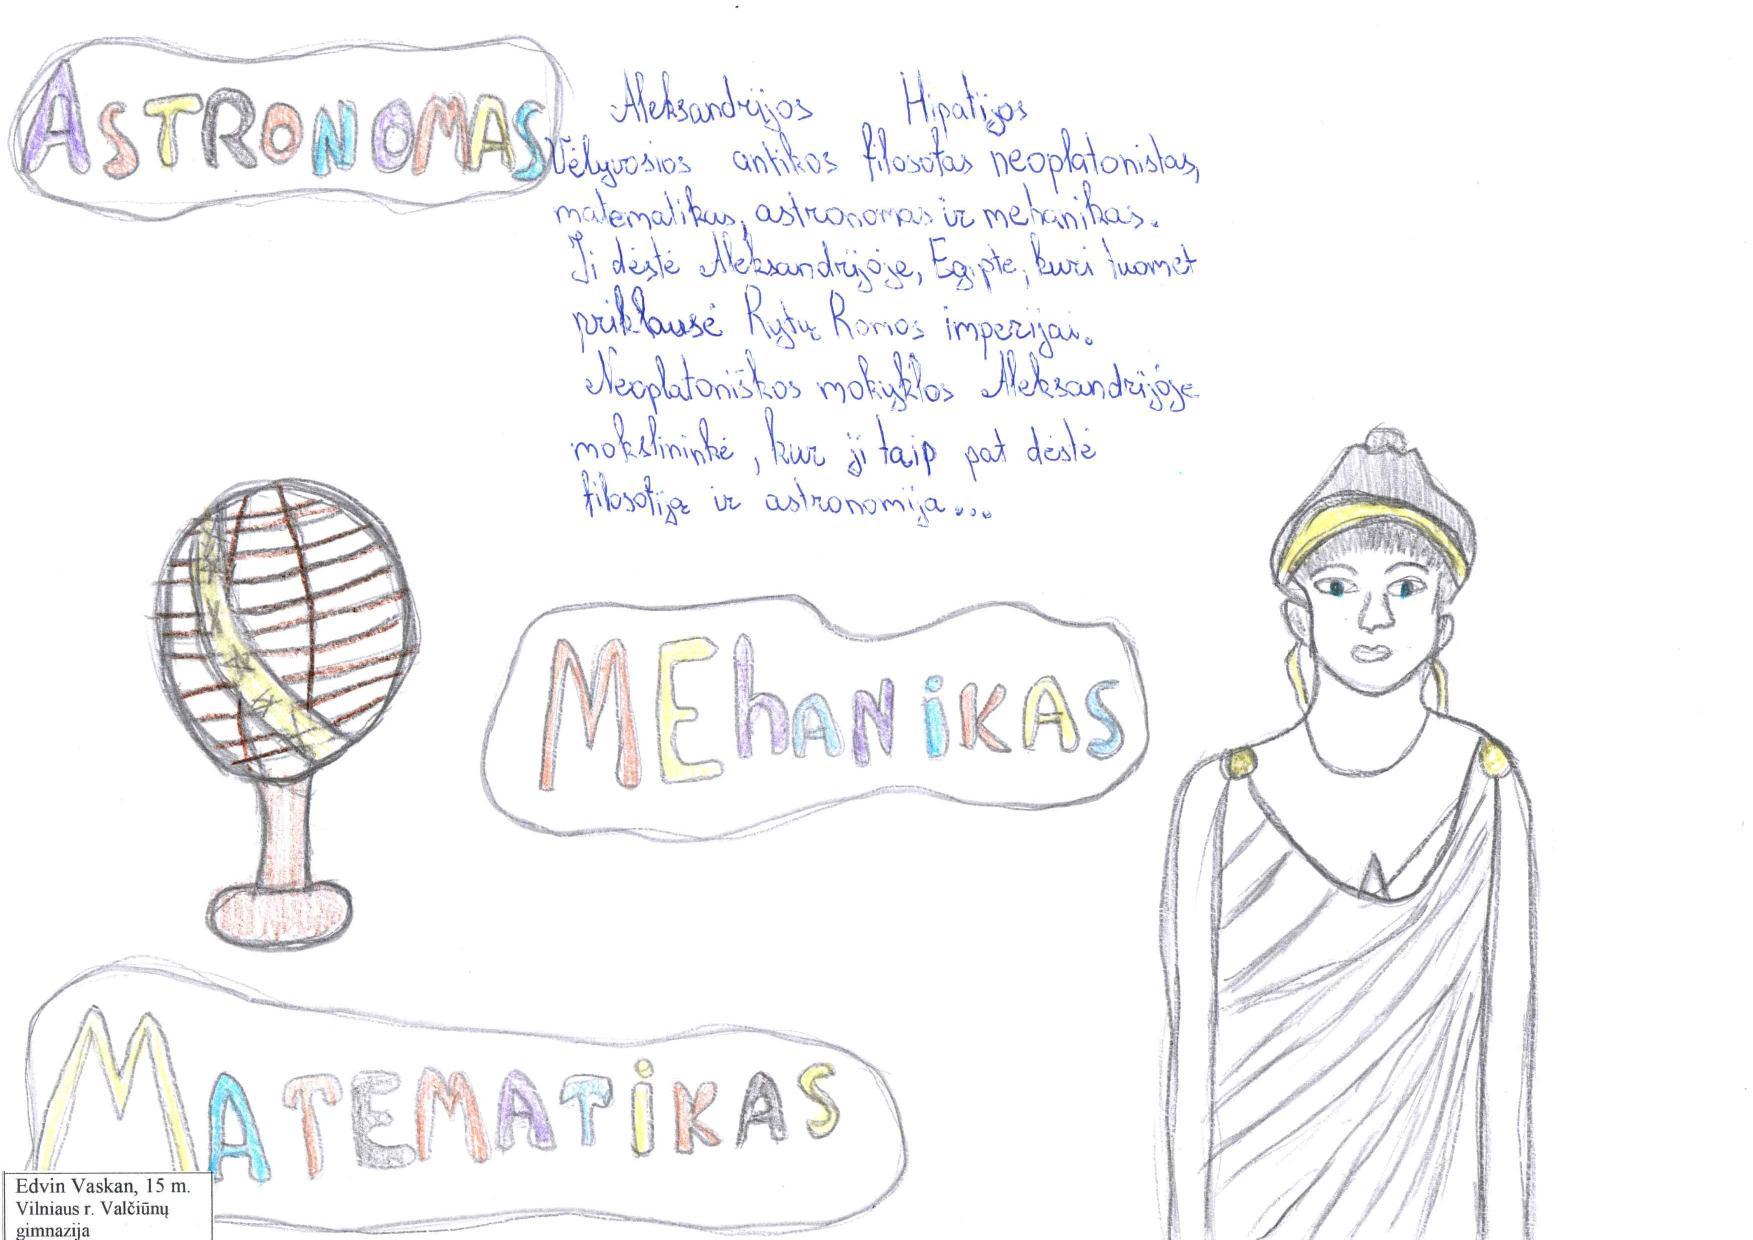 ASTRONOMAS
Aleksandrijos Hipatijos
Vėlyvosios antikos filosofas neoplatonistas,
matematikas, astronomas ir mehanikas.
Ji dėstė Aleksandrijoje, Egipte, kuri tuomet
priklausė Rytų Romos imperijai.
Neoplatoniškos mokyklos Aleksandrijoje
mokslininkė, kur ji taip pat dėstė
filosofiją ir astronomija...
MEhANiKAS
MATEMATiKAS
Edvin Vaskan, 15 m.
Vilniaus r. Valčiūnų
gimnazija